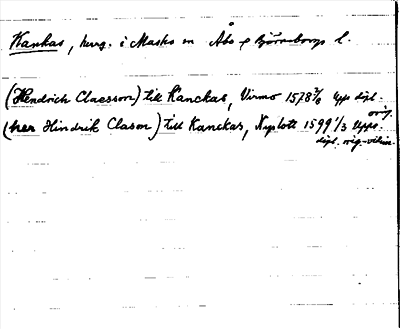 Kankas, herrg. i Masko sn Åbo o Björneborgs l.
(Hendrich Claesson) till Kanckas, Virmo 1578 7/8 Upps dipl. orig.
(her Hindrik Clason) till Kanckas, Nyslott 1599 1/3 Upps. dipl. orig-vidim.